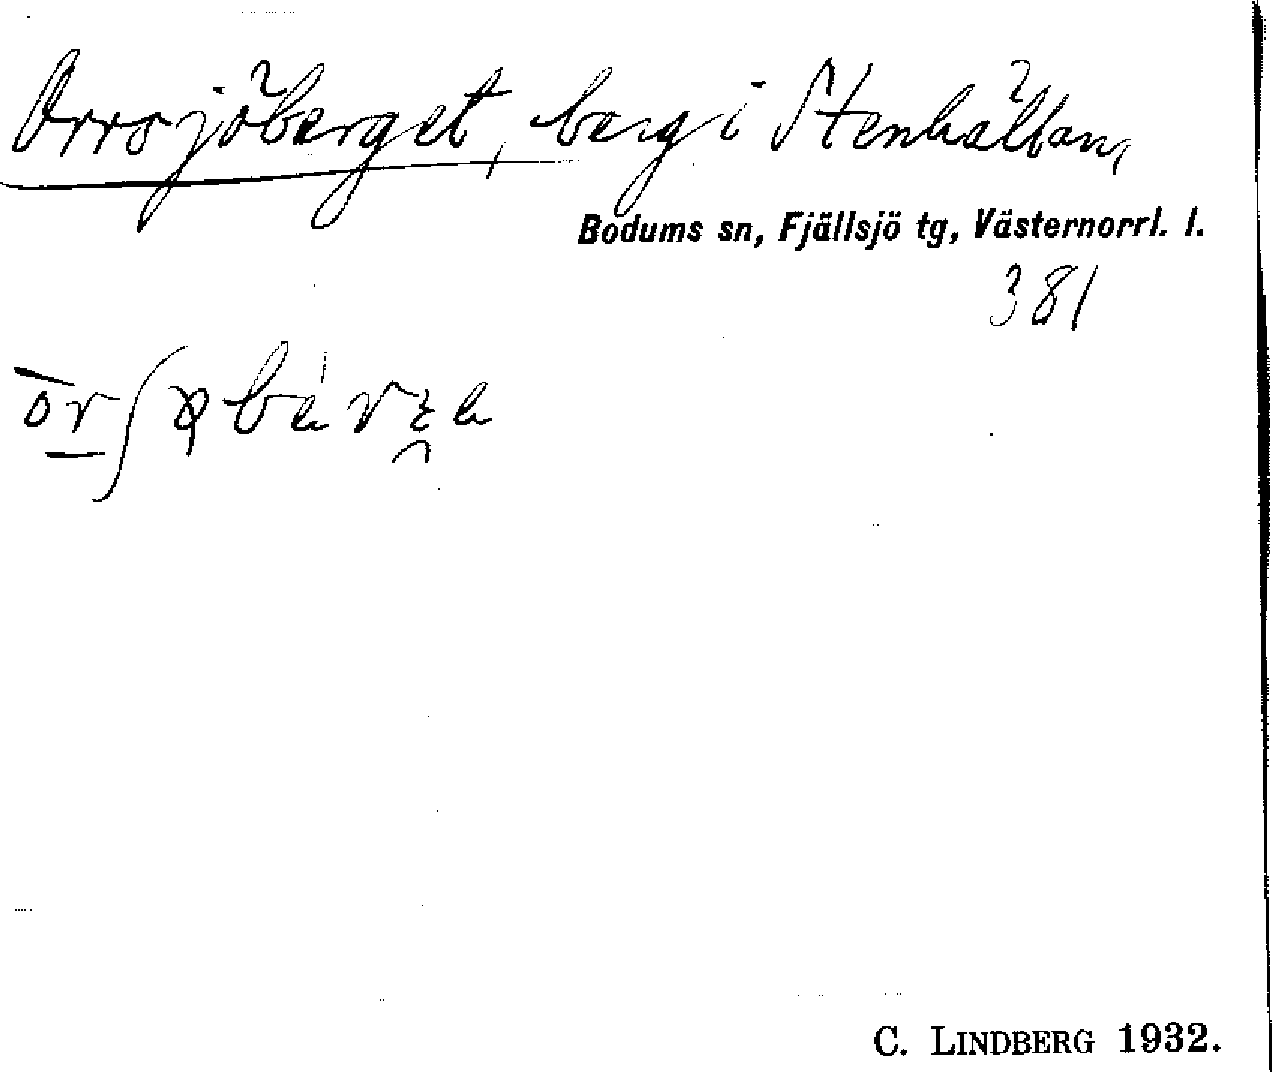 Orrsjöberget, berg i Stenhällan,
Bodums sn, Fjällsjö tg, Västernorrl. l.
381
C. LINDBERG 1932.